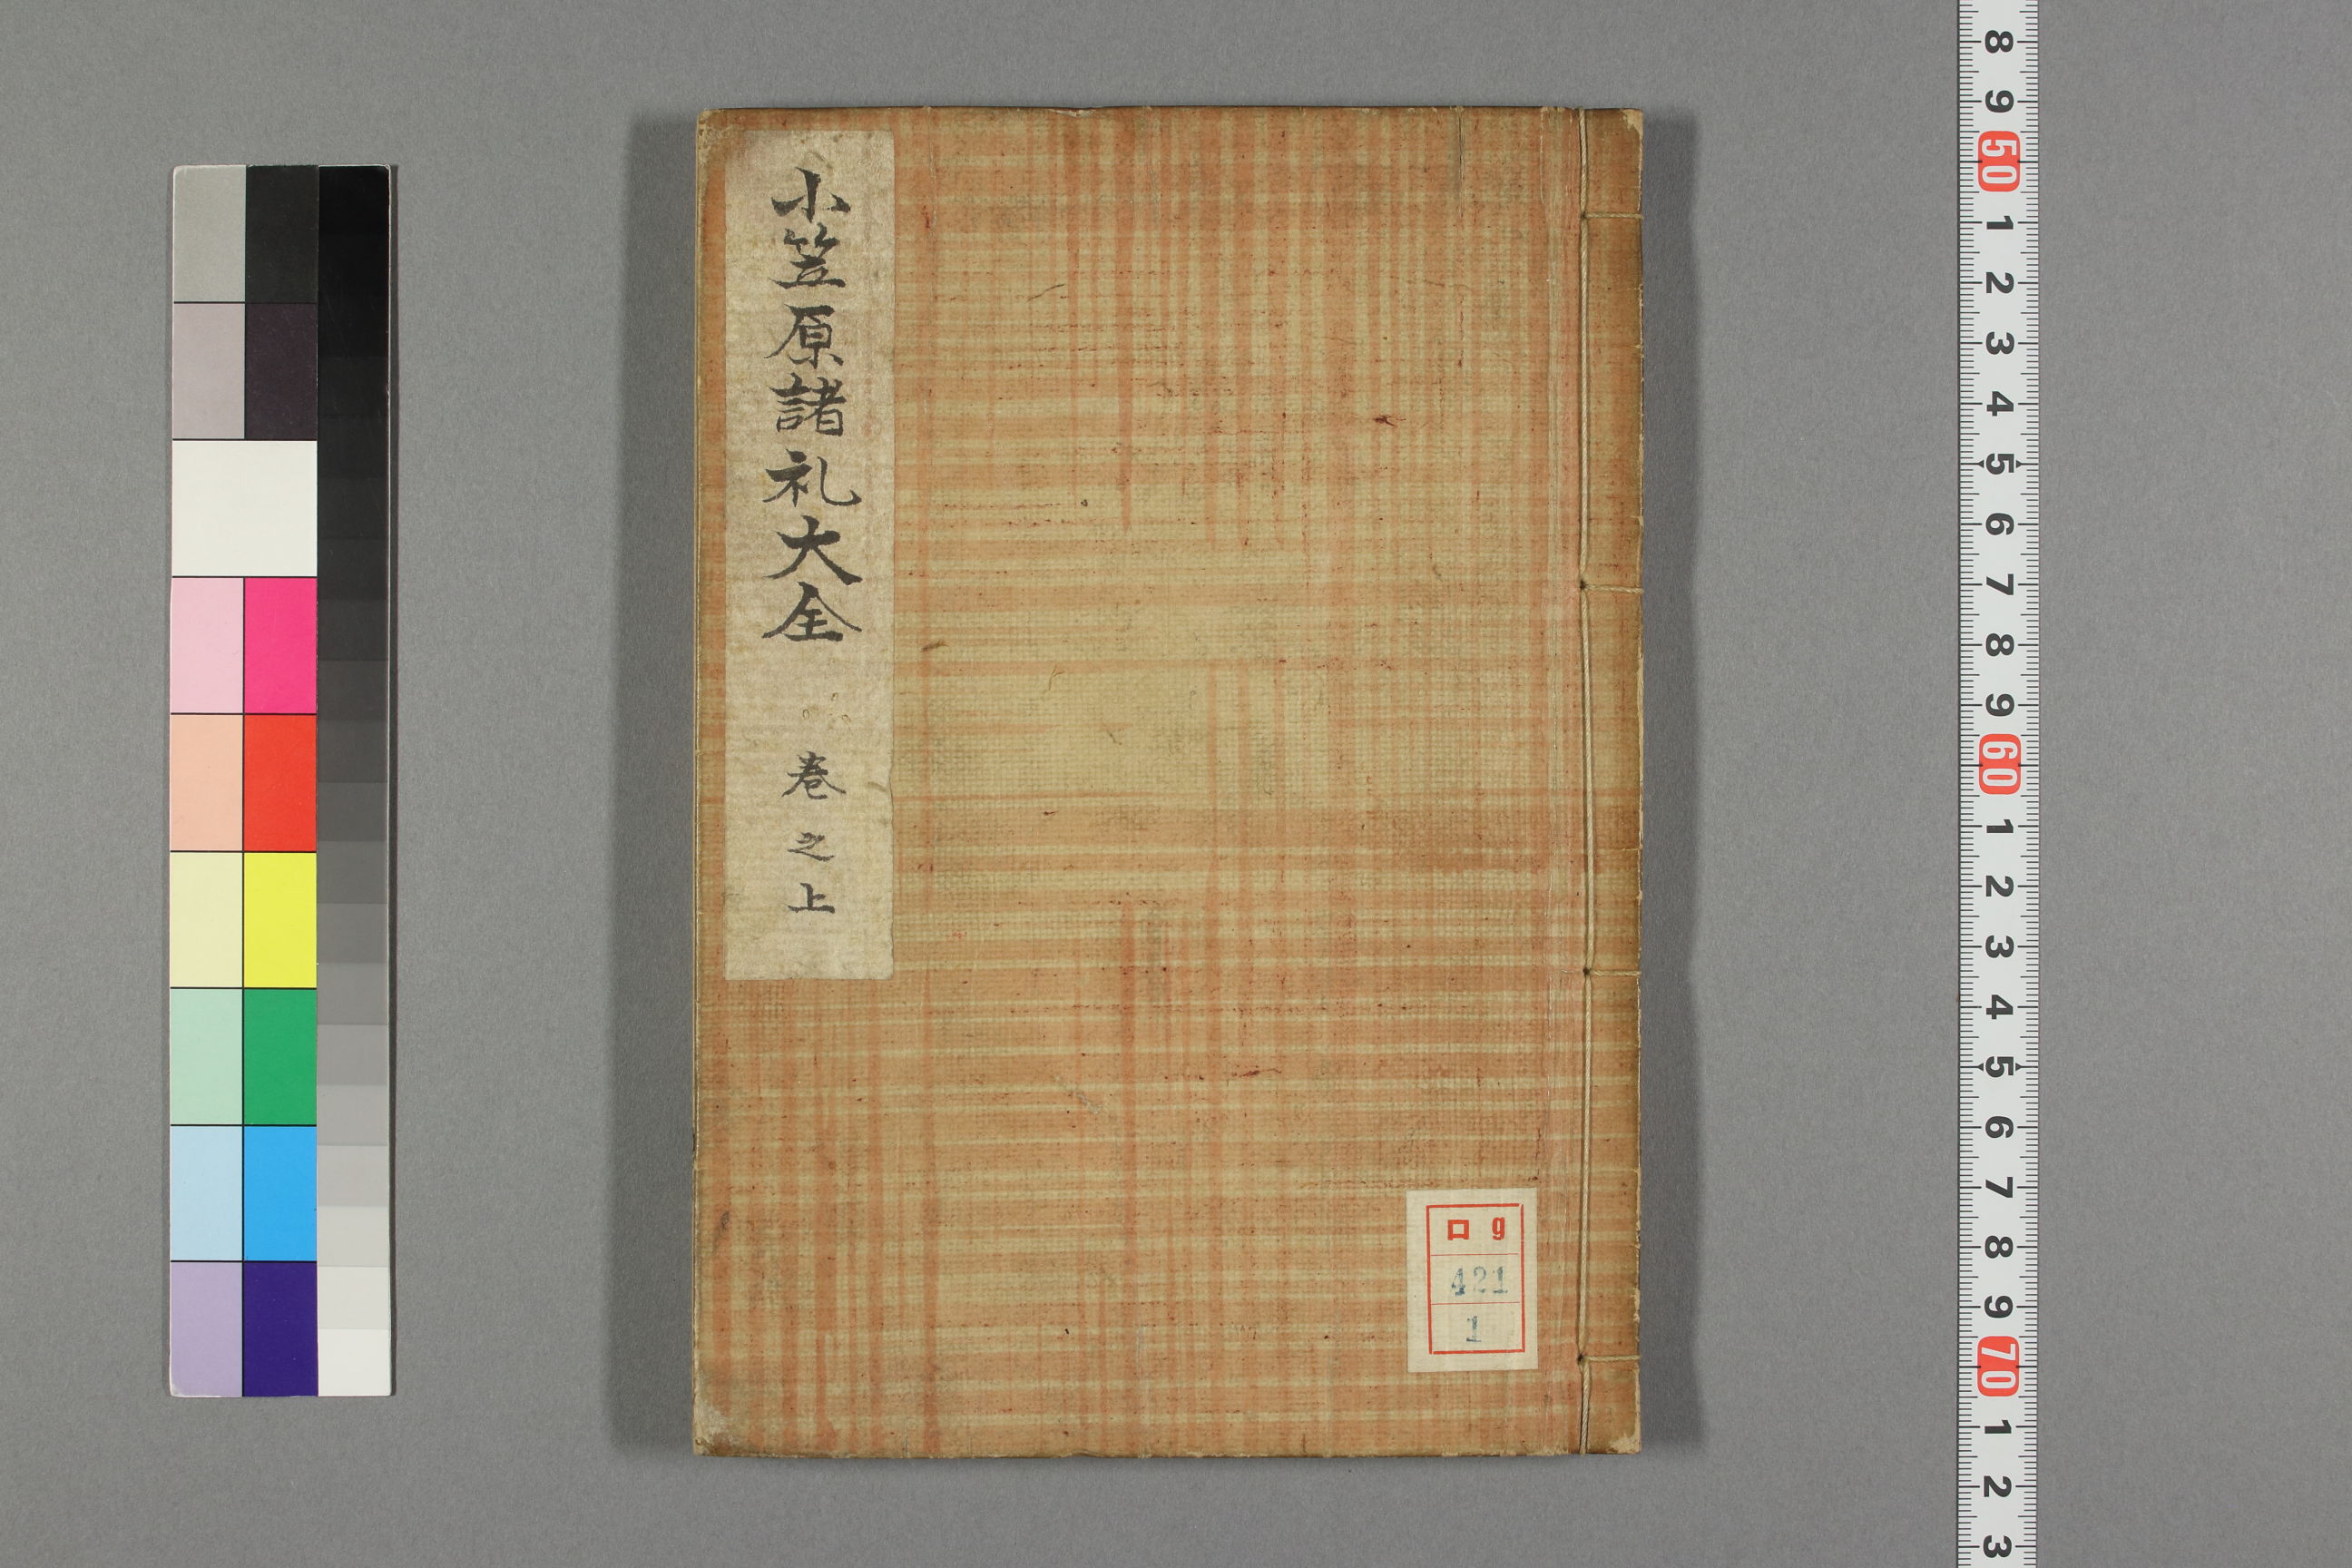 小笠原諸礼大全
巻之上
ロ g
421
1
8
9
50
1
2
3
4
5
6
7
8
9
60
1
2
3
4
5
6
7
8
9
70
1
2
3